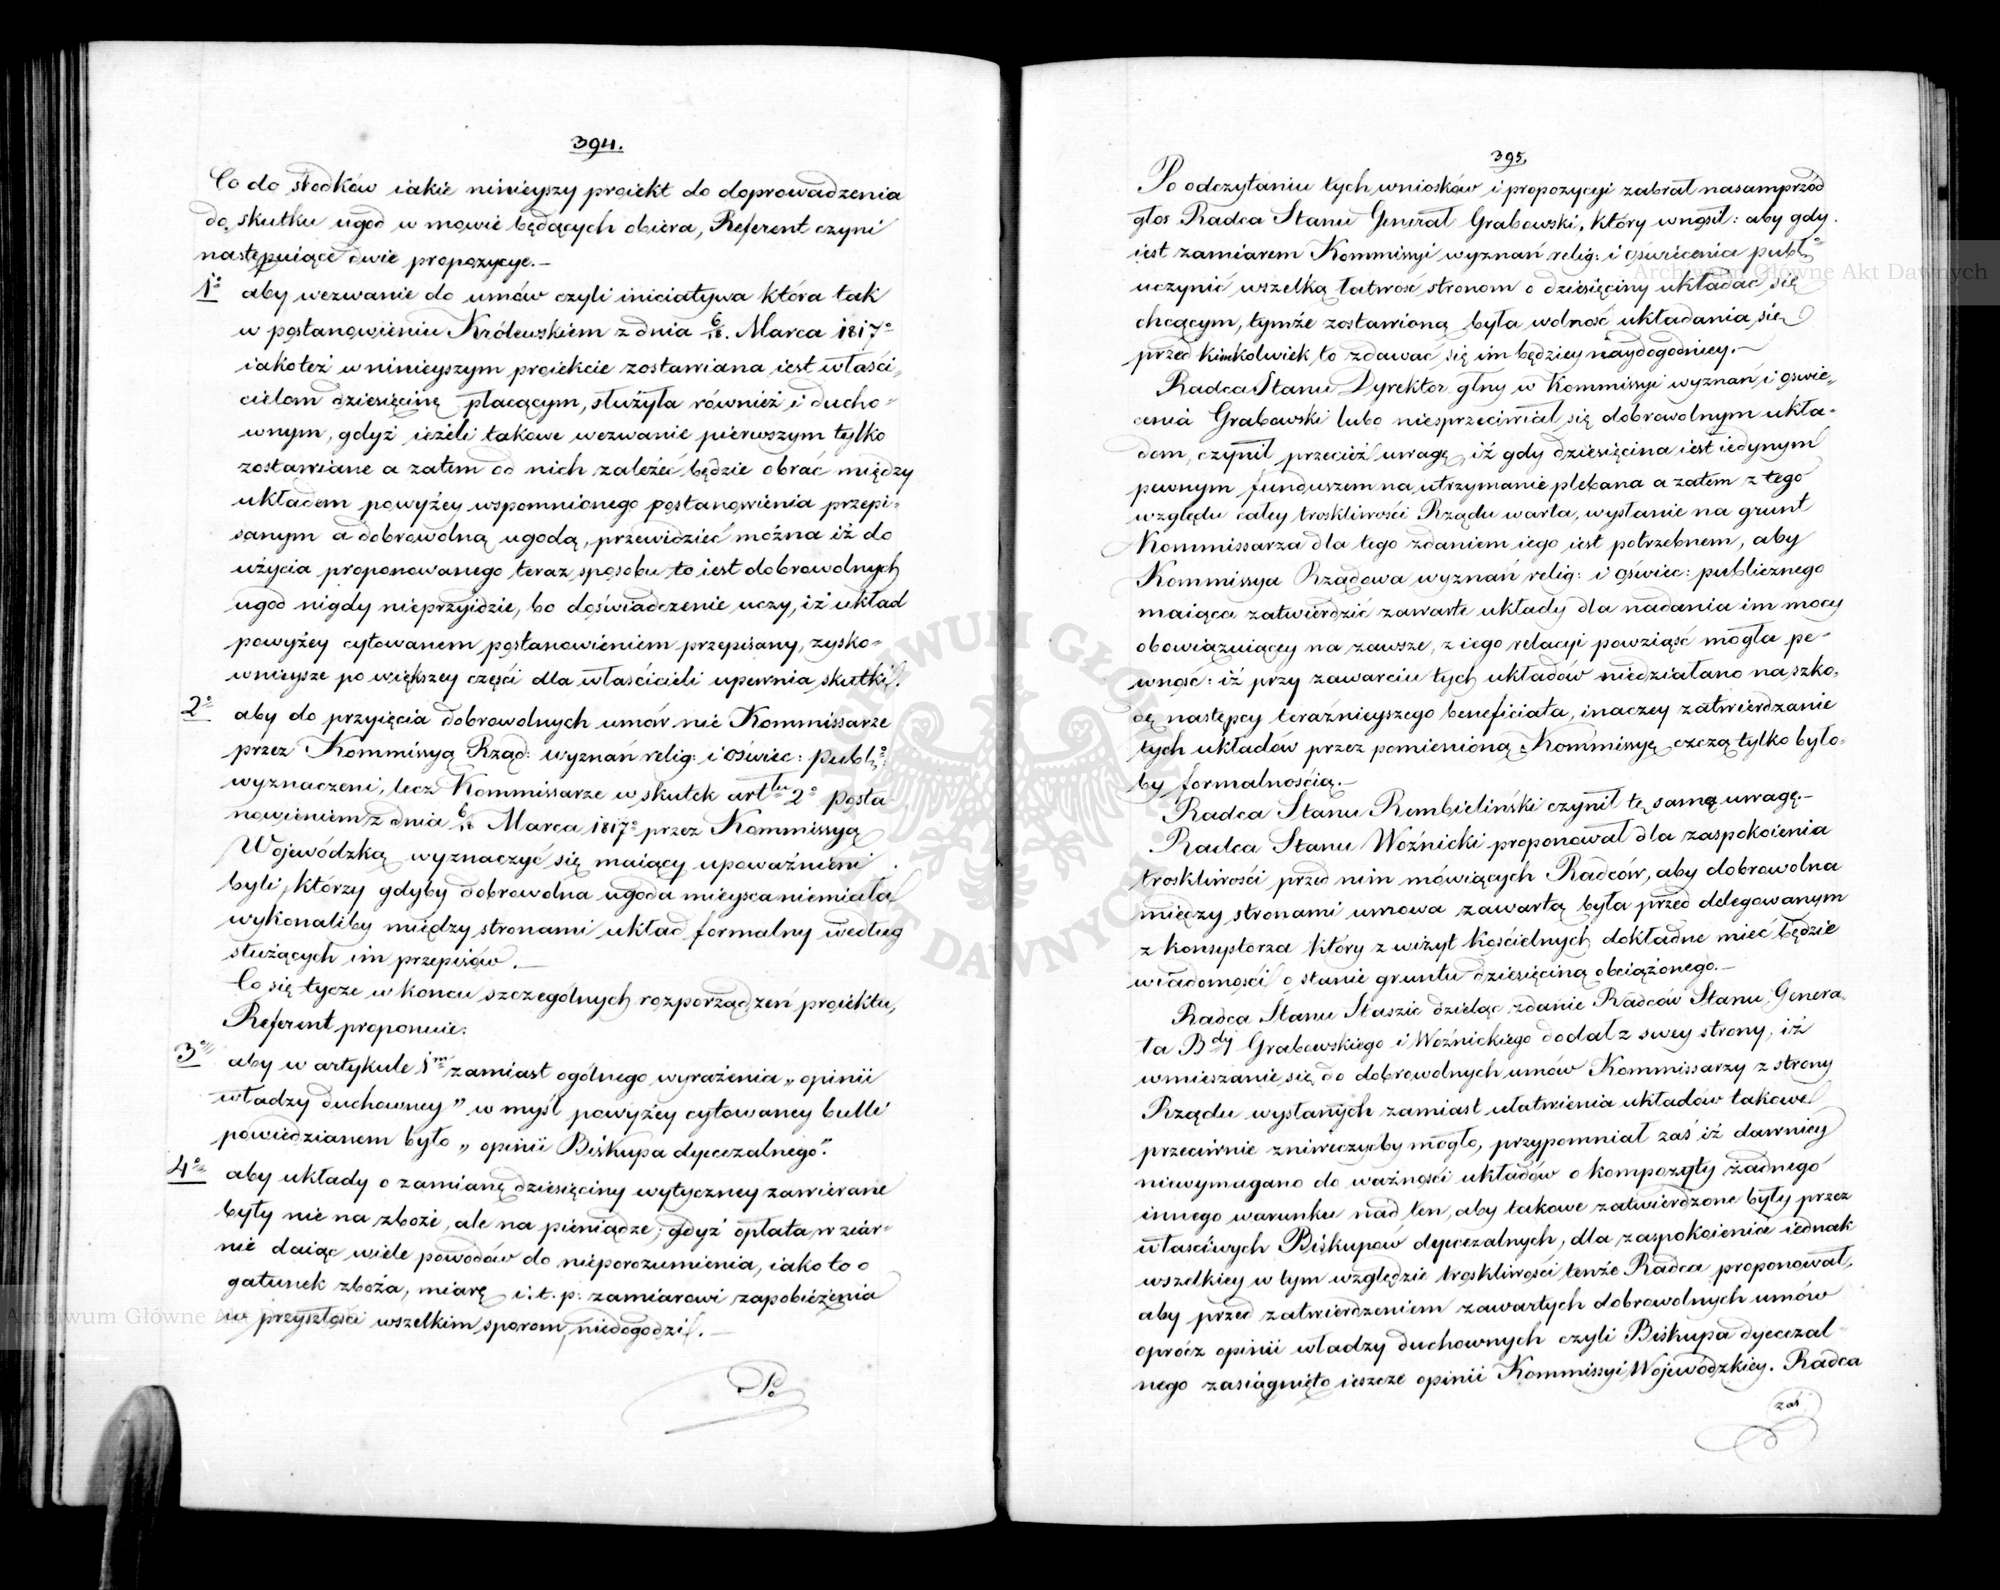 394.
Co do srodków iakie ninieyszy proiekt do doprowadzenia
do skutku ugod w mowie będących obiera, Referent czyni
następuiące dwie propozycye.—
1o aby wezwanie do umów czyli iniciatywa która tak
w postanowieniu Królewskiem z dnia 6/18. Marca 1817o
iakoteż w ninieyszym proiekcie zostawiana iest właści-
cielom dziesięcinę płacącym, służyła również i ducho-
wnym, gdyż ieżeli takowe wezwanie pierwszym tylko
zostawiane a zatem od nich zależeć będzie obrać między
układem powyżey wspomnionego postanowienia przepi-
sanym a dobrowolną ugodą, przewidzieć można iż do
użycia proponowanego teraz sposobu to iest dobrowolnych
ugod nigdy nieprzyidzie, bo doświadczenie uczy, iż układ
powyżey cytowanem postanowieniem przepisany, zysko-
wnieysze po większey części dla właścicieli upewnia skutki.
2o aby do przyięcia dobrowolnych umów nie Kommissarze
przez Kommissyą Rząd: wyznań relig: i oświec: publ:
wyznaczeni, lecz Kommissarze w skutek arttu 2o Posta
nowieniem z dnia 6/18 Marca 1817o przez Kommissyą
Wojewódzką wyznaczyć się maiący upoważnieni
byli, którzy gdyby dobrowolna ugoda mieysca niemiała
wykonaliby między stronami układ formalny według
służących im przepisów.—
Co się tycze w koncu szczególnych rozporządzeń proiektu,
Referent proponuie:
3o aby w artykule 1m zamiast ogólnego wyrażenia „opinii
władzy duchowney” w myśl powyżey cytowaney bulli
powiedzianem było „opinii Biskupa dyecezalnego”.
4o aby układy o zamianę dziesięciny wytyczney zawierane
były nie na zboże, ale na pieniądze; gdyż opłata w ziar-
nie daiąc wiele powodów do nieporozumienia, iako to o
gatunek zboża, miarę i.t.p: zamiarowi zapobieżenia
w przyszłości wszelkim sporom niedogodzi.—
Po
395.
Po odczytaniu tych wniosków i propozycyi zabrał nasamprzód
głos Radca Stanu Generał Grabowski, który wnosił: aby gdy
iest zamiarem Kommissyi wyznań relig: i oświecenia publ:
uczynić wszelką łatwość stronom o dziesięciny układać się
chcącym, tymże zostawioną była wolność układania się
przed kimkolwiek to zdawać się im będziey naydogodniey.—
Radca Stanu Dyrektor głny w Kommissyi wyznań i oświe-
cenia Grabowski lubo niesprzeciwiał się dobrowolnym ukła-
dom, czynił przecież uwagę, iż gdy dziesięcina iest iedynym
pewnym funduszem na utrzymanie plebana a zatem z tego
względu całey troskliwości Rządu warta, wysłanie na grunt
Kommissarza dla tego zdaniem iego iest potrzebnem, aby
Kommissya Rządowa wyznań relig: i oświec: publicznego
maiąca zatwierdzić zawarte układy dla nadania im mocy
obowiązuiącey na zawsze, z iego relacyi powziąść mogła pe-
wność: iż przy zawarciu tych układów niedziałano na szko-
dę następcy teraźnieyszego beneficiata, inaczey zatwierdzanie
tych układów przez pomienioną Kommissyę czczą tylko było-
by formalnością.—
Radca Stanu Rembieliński czynił tę samą uwagę.—
Radca Stanu Woźnicki proponował dla zaspokoienia
troskliwości przed nim mówiących Radców, aby dobrowolna
między stronami umowa zawartą była przed delegowanym
z konsystorza który z wizyt kościelnych dokładne mieć będzie
wiadomości o stanie gruntu dziesięciną obciążonego.—
Radca Stanu Staszic dzieląc zdanie Radców Stanu, Genera-
ła Bdy Grabowskiego i Woźnickiego dodał z swey strony, iż
wmieszanie się do dobrowolnych umów Kommissarzy z strony
Rządu wysłanych zamiast ułatwienia układów takowe
przeciwnie zniweczyćby mogło, przypomniał zaś iż dawniey
niewymagano do ważności układów o kompozyty żadnego
innego warunku nad ten, aby takowe zatwierdzone były przez
własciwych Biskupów dyecezalnych, dla zaspokoienia iednak
wszelkiey w tym względzie troskliwości tenże Radca proponował,
aby przed zatwierdzeniem zawartych dobrowolnych umów
oprócz opinii władzy duchownych czyli Biskupa dyecezal-
nego zasiągnięto ieszcze opinii Kommissyi Wojewódzkiey. Radca
zaś
Archiwum Główne Akt Dawnych
Archiwum Główne Akt Dawnych
ARCHIWUM GŁÓWNE AKT DAWNYCH